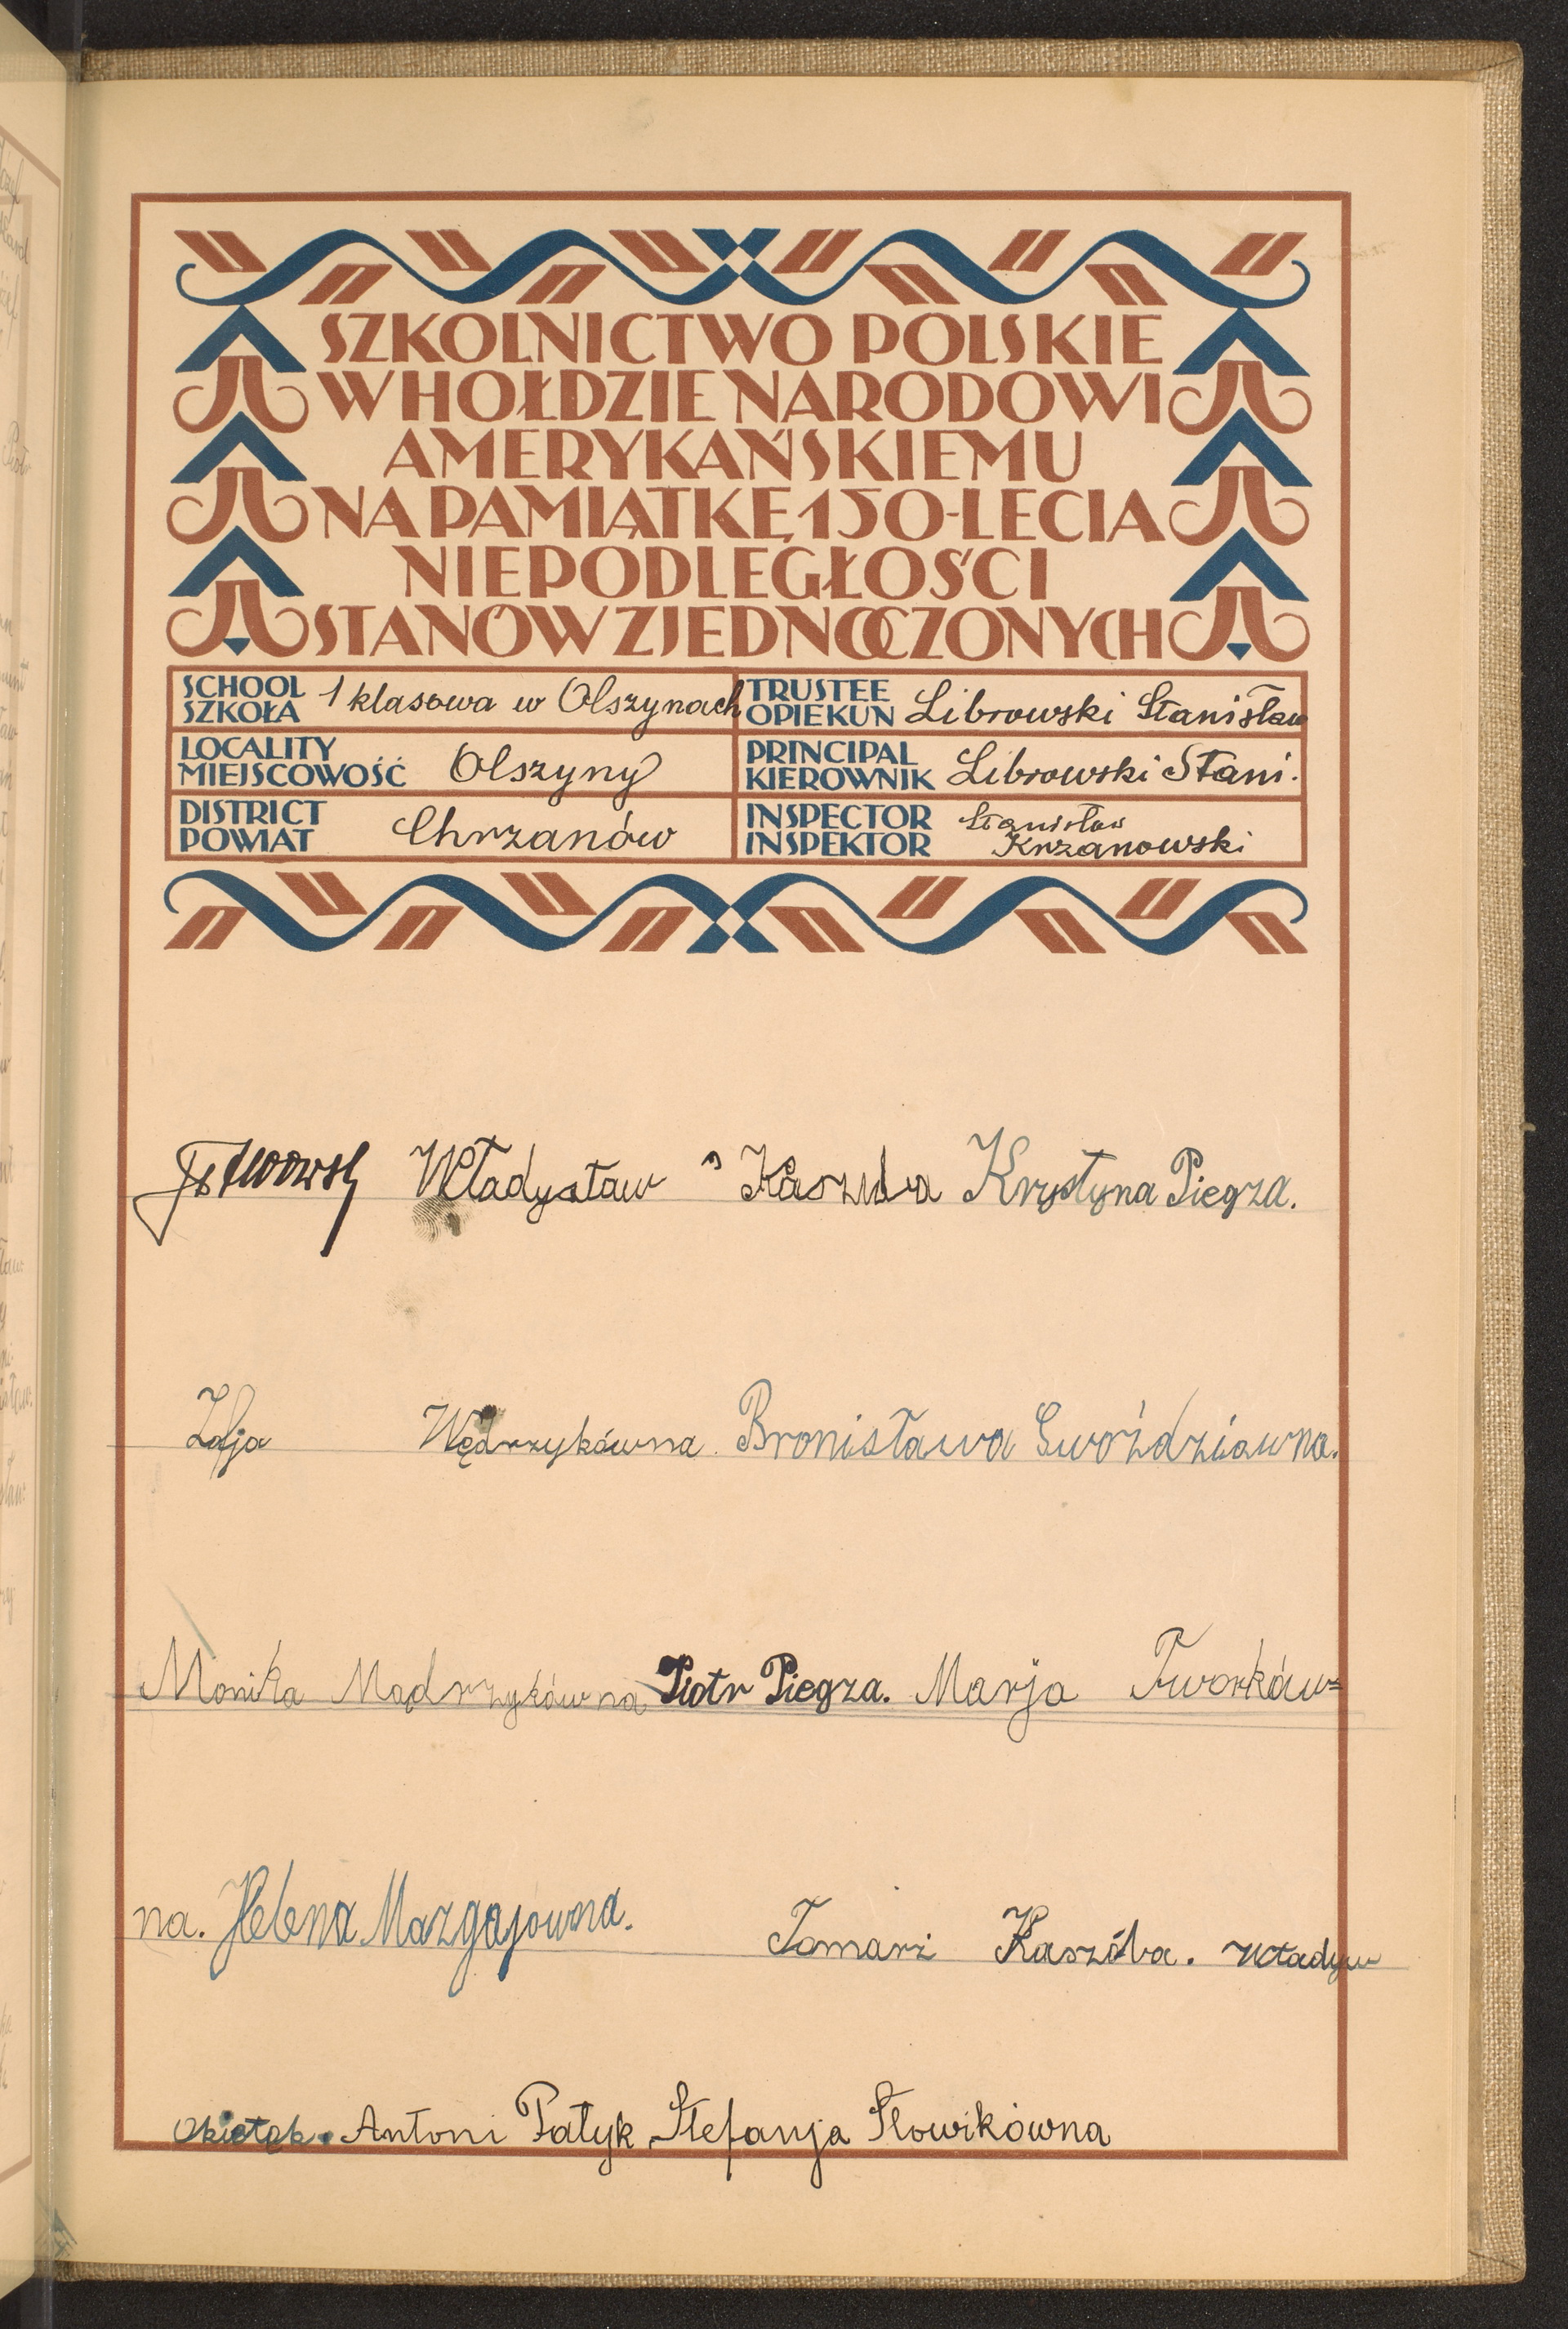 SZKOLNICTWO POLSKIE
W HOŁDZIE NARODOWI
AMERYKAŃSKIEMU
NA PAMIĄTKĘ 150-LECIA
NIEPODLEGŁOŚCI
STANÓW ZJEDNOCZONYCH
SCHOOL SZKOŁA 1 klasowa w Olszynach
TRUSTEE OPIEKUN Librowski Stanisław
LOCALITY MIEJSCOWOŚĆ Olszyny
PRINCIPAL KIEROWNIK Librowski Stani.
DISTRICT POWIAT Chrzanów
INSPECTOR INSPEKTOR Stanisław Krzanowski
Władysław Kaszuba Krystyna Piegza.
Zofja Wędrzykówna. Bronisława Gwoździówna.
Monika Mądrzykówna Piotr Piegza. Marja Tworków=
na. Helena Mazgajówna. Tomarz Kaszóba. Władyw
Antoni Patyk Stefanja Słowikówna